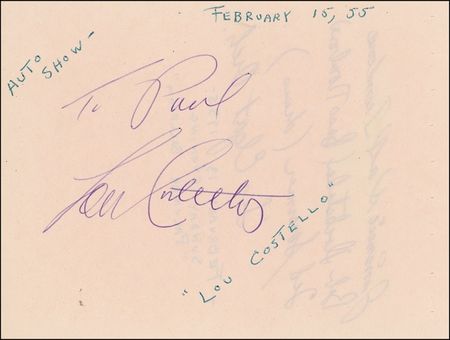 FEBRUARY 15, 55
AUTO
SHOW-
To Paul
Lou Costello
"LOU COSTELLO"